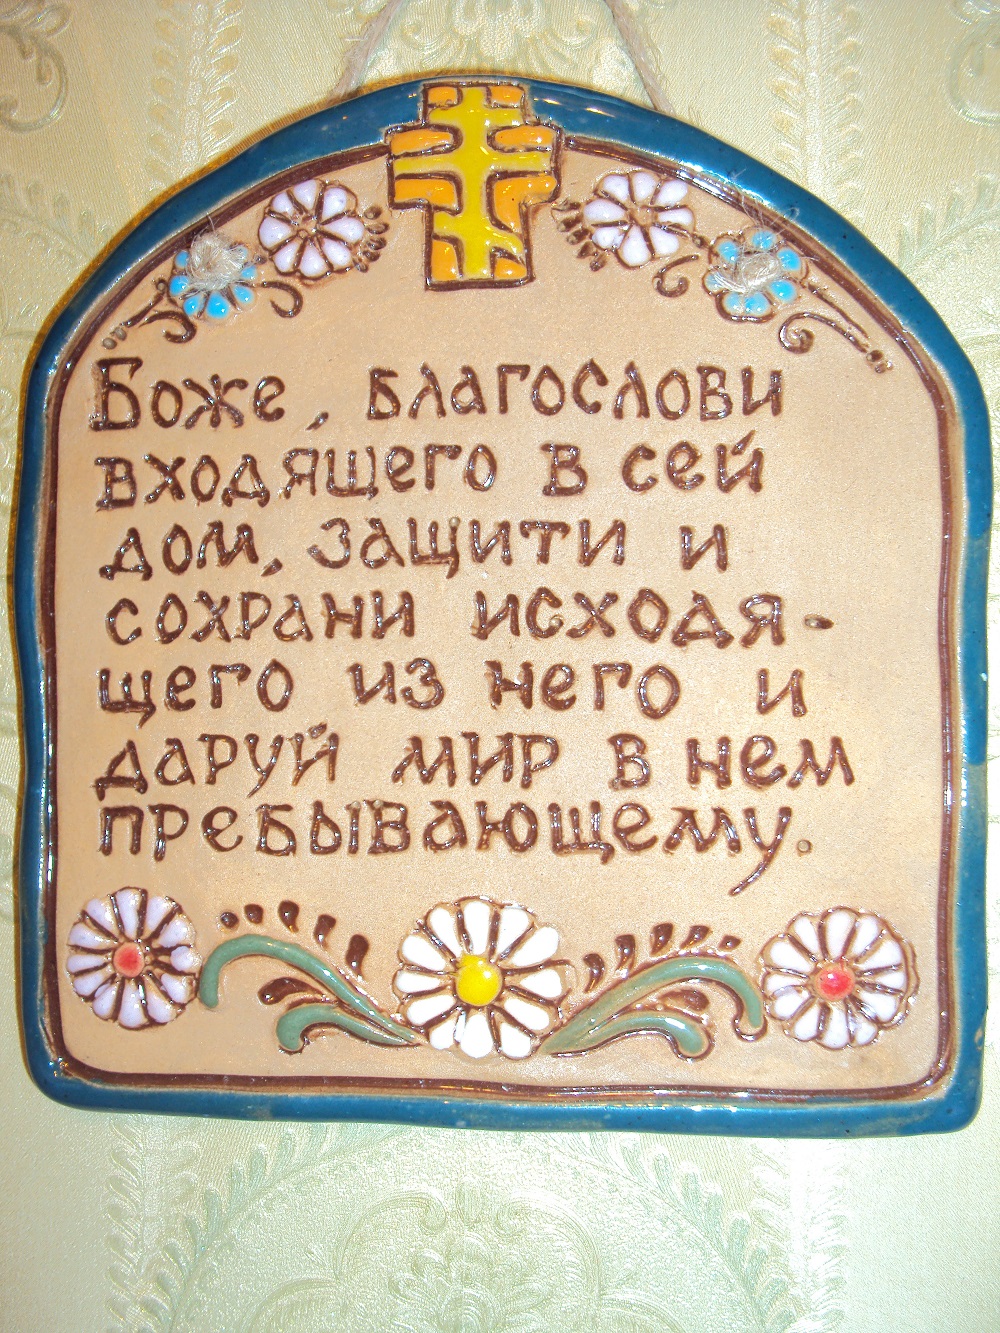 Боже, благослови
входящего в сей
дом, защити и
сохрани исходя-
щего из него и
даруй мир в нем
пребывающему.